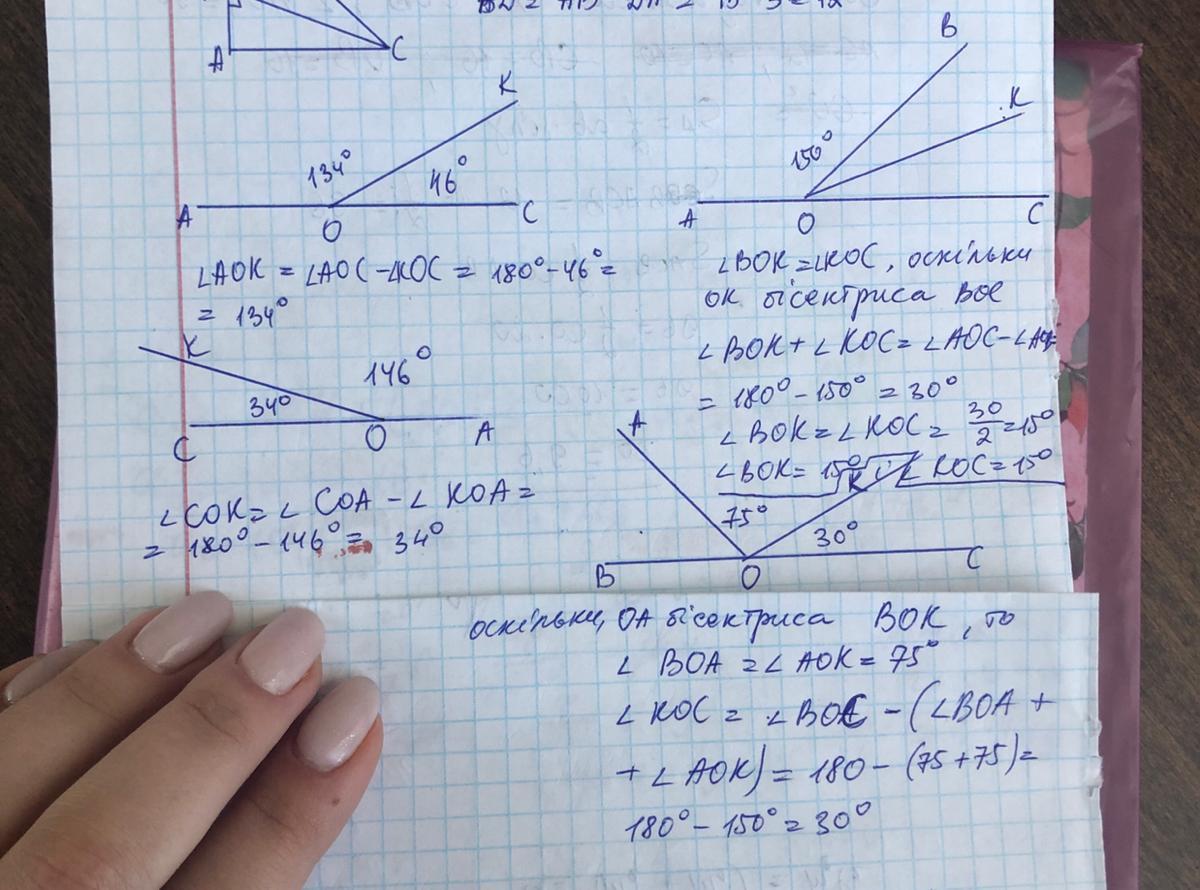 A C
K
134° 46°
A O C
∠AOK = ∠AOC - ∠KOC = 180° - 46° =
= 134°
B
K
150°
A O C
∠BOK = ∠KOC, оскільки
OK бісектриса BOC
∠BOK + ∠KOC = ∠AOC - ∠AOB
= 180° - 150° = 30°
∠BOK = ∠KOC = 30/2 = 15°
∠BOK = 15° і ∠KOC = 15°
K
146°
34°
C O A
∠COK = ∠COA - ∠KOA =
= 180° - 146° = 34°
A
K
75° 30°
B O C
оскільки, OA бісектриса BOK, то
∠BOA = ∠AOK = 75°
∠KOC = ∠BOC - (∠BOA +
+ ∠AOK) = 180 - (75 + 75) =
180° - 150° = 30°